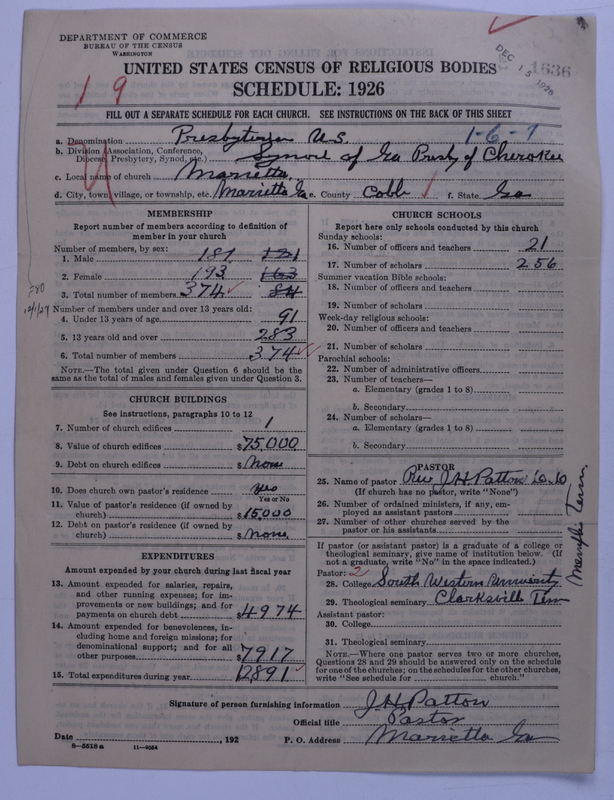 DEPARTMENT OF COMMERCE
BUREAU OF THE CENSUS
WASHINGTON
DEC 15 1926
1636
UNITED STATES CENSUS OF RELIGIOUS BODIES
SCHEDULE: 1926
1 9
FILL OUT A SEPARATE SCHEDULE FOR EACH CHURCH. SEE INSTRUCTIONS ON THE BACK OF THIS SHEET
1-6-7
a. Denomination Presbyterian U.S.
b. Division (Association, Conference, Diocese, Presbytery, Synod, etc.) Synod of Ga Presby of Cherokee
c. Local name of church Marietta
d. City, town, village, or township, etc. Marietta Ga e. County Cobb f. State Ga
MEMBERSHIP
Report number of members according to definition of member in your church
Number of members, by sex:
1. Male 181
2. Female 193 163
3. Total number of members 374 84
380
12/1/27
Number of members under and over 13 years old:
4. Under 13 years of age 91
5. 13 years old and over 283
6. Total number of members 374
NOTE.—The total given under Question 6 should be the same as the total of males and females given under Question 3.
CHURCH BUILDINGS
See instructions, paragraphs 10 to 12
7. Number of church edifices 1
8. Value of church edifices $75,000
9. Debt on church edifices $ None
10. Does church own pastor's residence yes
Yes or No
11. Value of pastor's residence (if owned by church) $15,000
12. Debt on pastor's residence (if owned by church) $ none
EXPENDITURES
Amount expended by your church during last fiscal year
13. Amount expended for salaries, repairs, and other running expenses; for improvements or new buildings; and for payments on church debt $4974
14. Amount expended for benevolences, including home and foreign missions; for denominational support; and for all other purposes $7917
15. Total expenditures during year 12891
CHURCH SCHOOLS
Report here only schools conducted by this church
Sunday schools:
16. Number of officers and teachers 21
17. Number of scholars 256
Summer vacation Bible schools:
18. Number of officers and teachers
19. Number of scholars
Week-day religious schools:
20. Number of officers and teachers
21. Number of scholars
Parochial schools:
22. Number of administrative officers
23. Number of teachers—
a. Elementary (grades 1 to 8)
b. Secondary
24. Number of scholars—
a. Elementary (grades 1 to 8)
b. Secondary
PASTOR
25. Name of pastor Rev J.H. Patton
(If church has no pastor, write "None")
26. Number of ordained ministers, if any, employed as assistant pastors
27. Number of other churches served by the pastor or his assistants
If pastor (or assistant pastor) is a graduate of a college or theological seminary, give name of institution below. (If not a graduate, write "No" in the space indicated.)
Pastor: 2
28. College South Western University
29. Theological seminary Clarksville Tenn
Memphis Tenn.
Assistant pastor:
30. College
31. Theological seminary
NOTE.—Where one pastor serves two or more churches, Questions 28 and 29 should be answered only on the schedule for one of the churches; on the schedules for the other churches, write "See schedule for ____ church."
Signature of person furnishing information J.H. Patton
Official title Pastor
Date ____, 192 P. O. Address Marietta Ga
8—5518a 11—9064